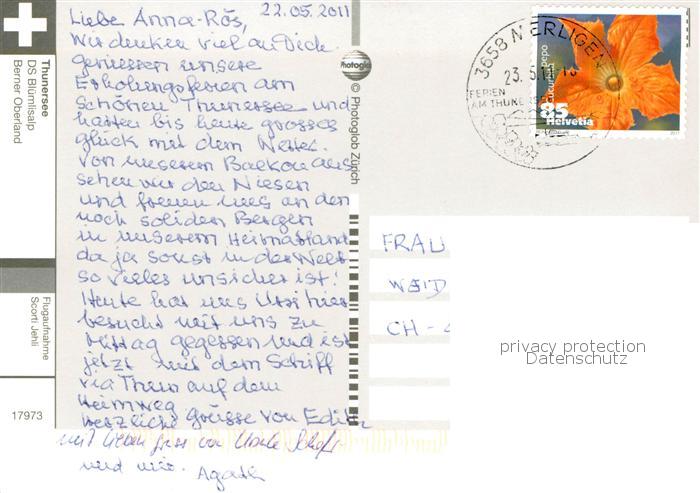 22.05.2011
Liebe Anna-Rös,
Wir denken viel an Dich
geniessen unsere
Erholungsferien am
schönen Thunersee und
hatten bis heute grosses
glück mit dem Wetter.
Von unserem Balkon aus
sehen wir den Niesen
und freuen uns an den
noch soliden Bergen
in unserem Heimatland
da ja sonst in der Welt
so vieles unsicher ist!
Heute hat uns Ursi hier
besucht mit uns zu
Mittag gegessen und ist
jetzt mit dem Schiff
via Thun auf dem
Heimweg
herzliche grüsse von Edith
mit lieben grüss von
und mir. Agath
Thunersee
DS Blümlisalp
Berner Oberland
Flugaufnahme
Scorti Jehli
17973
Photoglob
© Photoglob Zürich
3658 MERLIGEN
23.5.11
FERIEN
AM THUNERSEE
Cucurbita pepo
85
Helvetia
2011
FRAU
WEID
CH -
privacy protection
Datenschutz